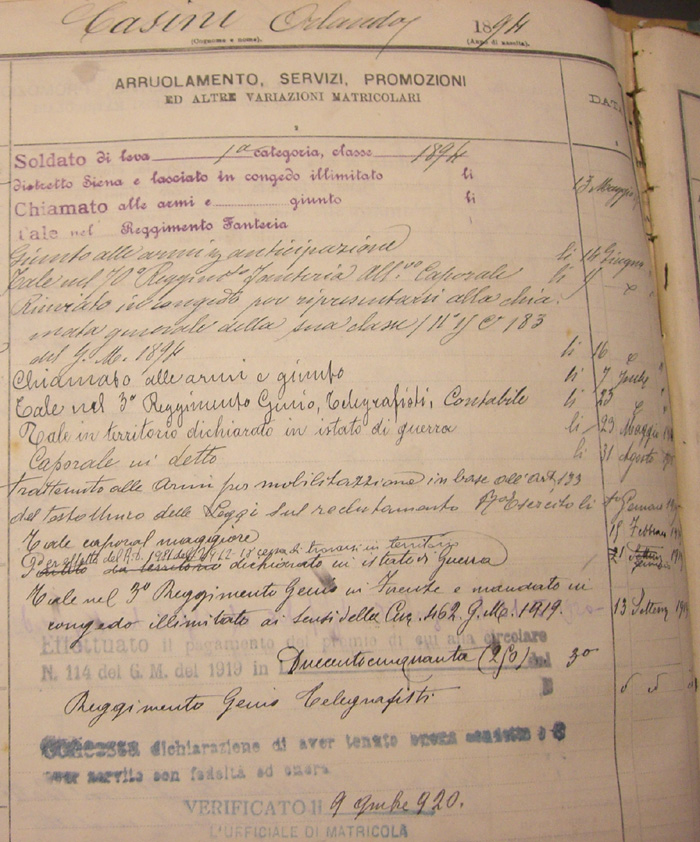 Casini Orlando 1894
(Cognome e nome). (Anno di nascita).
ARRUOLAMENTO, SERVIZI, PROMOZIONI
ED ALTRE VARIAZIONI MATRICOLARI
DATA
Soldato di leva 1a categoria, classe 1894
distretto Siena e lasciato in congedo illimitato li 13 Maggio
Chiamato alle armi e giunto li
Tale nel Reggimento Fanteria
Giunto alle armi anticipazione li 14 Giugno
Tale nel 70° Reggimto Fanteria All.vo Caporale li
Rinviato in congedo per ripresentarsi alla chia-
mata generale della sua classe
del G. M. 1894 li 16
Chiamato alle armi e giunto li 7
Tale nel 3° Reggimento Genio, Telegrafisti, Contabile li 23
Tale in territorio dichiarato in istato di guerra li 23 Maggio
Caporale in detto li 31 Agosto
Trattenuto alle Armi per mobilitazzione in base all'art. 133
del testo Unico delle Leggi sul reclutamento R° Esercito li Gennaio
Tale caporal maggiore 18 Febbraio
cessa di trovarsi in territorio
dichiarato in istato di Guerra 21
Tale nel 3° Reggimento Genio in Firenze e mandato in
congedo illimitato ai sensi della Circ. 462. G. M. 1919. 13 Settem
Effettuato il pagamento del premio di cui alla circolare
N. 114 del G. M. del 1919 in L.
Duecentocinquanta (250) dal 3°
Reggimento Genio Telegrafisti
Concessa dichiarazione di aver tenuto buona condotta e di
aver servito con fedeltà ed onore
VERIFICATO li 9 9mbre 920.
L'UFFICIALE DI MATRICOLA